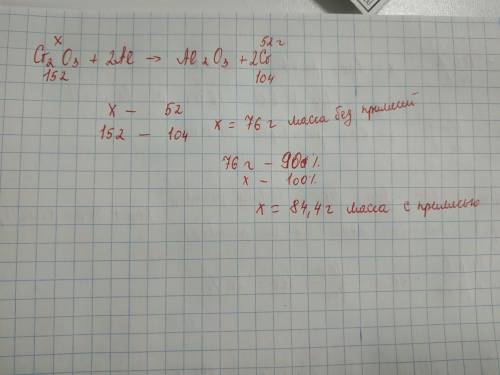 x 52 г
Cr₂O₃ + 2Al → Al₂O₃ + 2Cr
152 104
x — 52
152 — 104 x = 76 г масса без примесей
76 г — 90%
x — 100%
x = 84,4 г масса с примесью